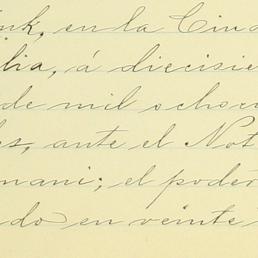 ink, en la Ciud
lia, á diecisie
de mil ochoci
es, ante el Not
mani; el poder
do en veinte